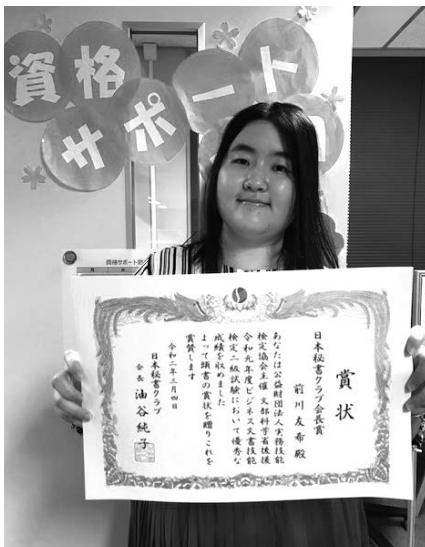 資格
サポート
資格サポート
賞状
日本秘書クラブ会長賞
前川友希殿
あなたは公益財団法人実務技能
検定協会主催 文部科学省後援
令和元年度ビジネス文書技能
検定二級試験において優秀な
成績を収めました
よって頭書の賞状を贈りこれを
賞賛します
令和二年三月四日
日本秘書クラブ
会長 油谷純子